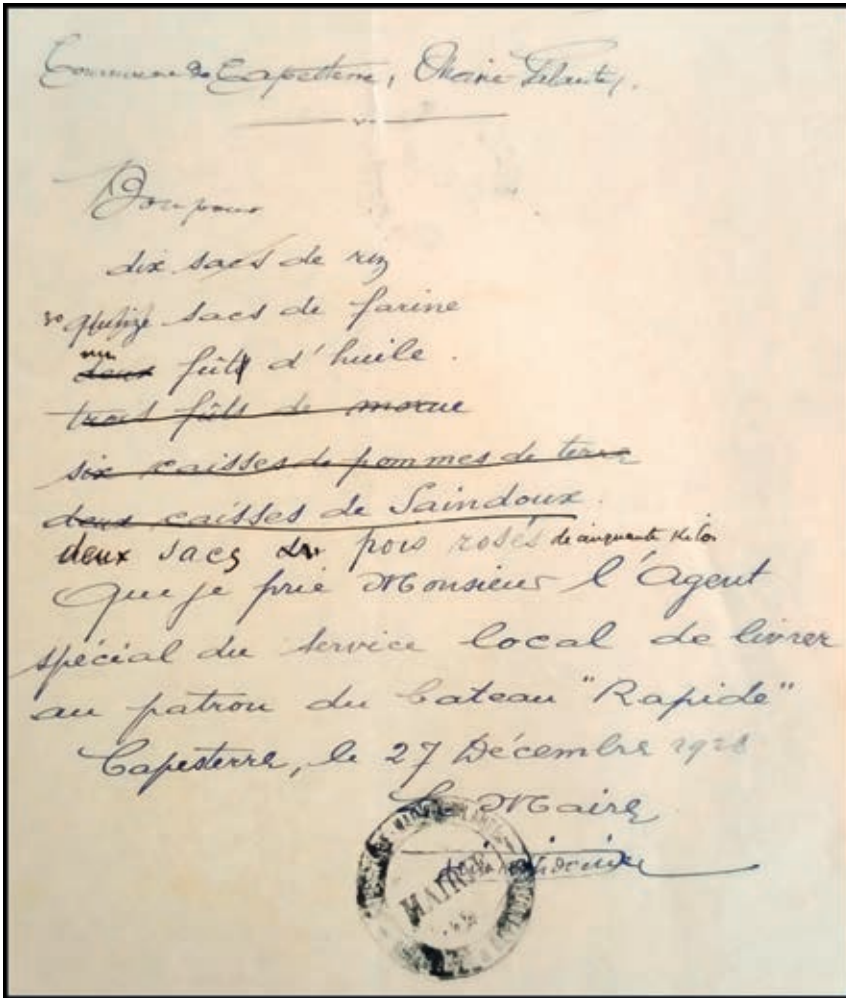 Commune de Capesterre, Marie Galante.
Bon pour
dix sacs de riz
30 quinze sacs de farine
un
deux fûts d'huile.
trois fûts de morue
six caisses de pommes de terre
deux caisses de Saindoux.
deux sacs de pois rosés de cinquante kilos
Que je prie Monsieur l'Agent
spécial du service local de livrer
au patron du bateau "Rapide"
Capesterre, le 27 Décembre 1928
Le Maire
MAIRIE